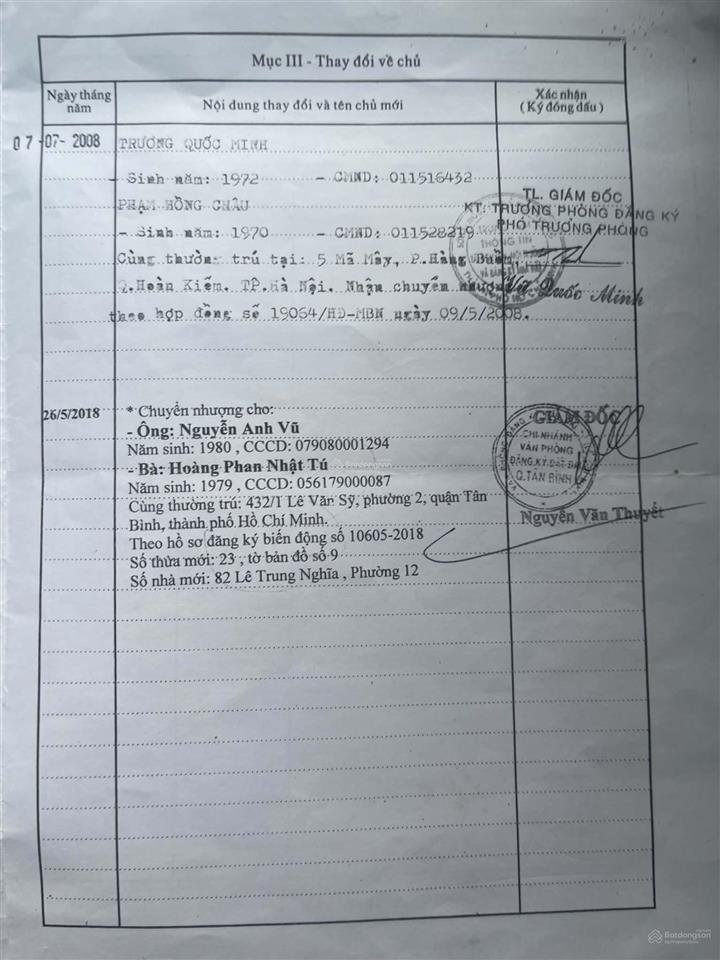 Mục III - Thay đổi về chủ
Ngày tháng năm
Nội dung thay đổi và tên chủ mới
Xác nhận
(Ký đóng dấu)
07-07-2008
TRƯƠNG QUỐC MINH
- Sinh năm: 1972 - CMND: 011516432
PHẠM HỒNG CHÂU
- Sinh năm: 1970 - CMND: 011528219
Cùng thường trú tại: 5 Mã Mây, P.Hàng Buồm,
Q.Hoàn Kiếm. TP.Hà Nội. Nhận chuyển nhượng
theo hợp đồng số 19064/HĐ-MBN ngày 09/5/2008.
TL. GIÁM ĐỐC
KT. TRƯỞNG PHÒNG ĐĂNG KÝ
PHÓ TRƯỞNG PHÒNG
THÔNG TIN
Vũ Quốc Minh
26/5/2018
* Chuyển nhượng cho:
- Ông: Nguyễn Anh Vũ
Năm sinh: 1980 , CCCD: 079080001294
- Bà: Hoàng Phan Nhật Tú
Năm sinh: 1979 , CCCD: 056179000087
Cùng thường trú: 432/1 Lê Văn Sỹ, phường 2, quận Tân
Bình, thành phố Hồ Chí Minh.
Theo hồ sơ đăng ký biến động số 10605-2018
Số thửa mới: 23 , tờ bản đồ số 9
Số nhà mới: 82 Lê Trung Nghĩa , Phường 12
GIÁM ĐỐC
CHI NHÁNH
VĂN PHÒNG
ĐĂNG KÝ ĐẤT ĐAI
Q.TÂN BÌNH
Nguyễn Văn Thuyết
Batdongsan